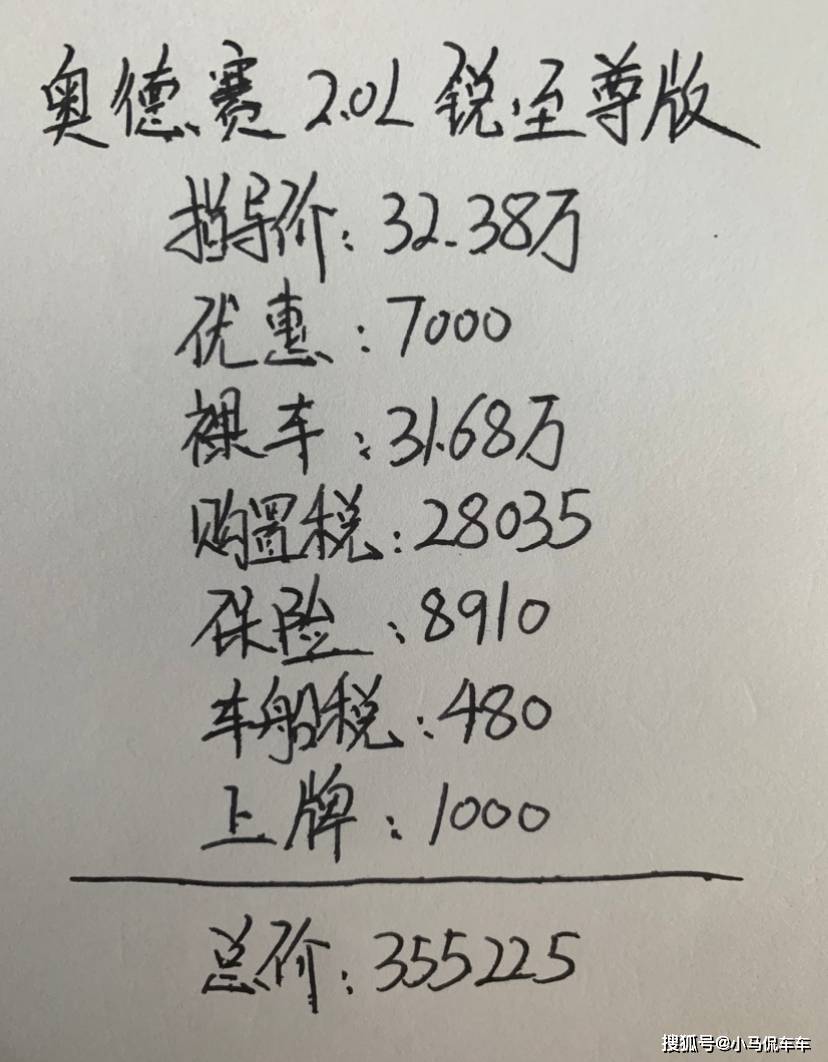 奥德赛 2.0L 锐·至尊版
指导价：32.38万
优惠：7000
裸车：31.68万
购置税：28035
保险：8910
车船税：480
上牌：1000
总价：355225
搜狐号@小马侃车车